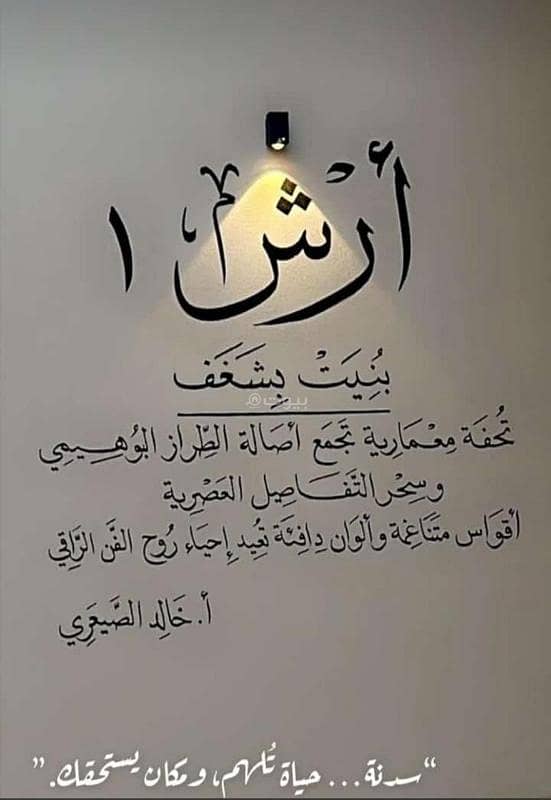 أرش ١
بُنِيَتْ بِشَغَف
بيوت
تُحفَة مِعْمَارِية تَجْمَع أصَالة الطِّراز البُوهِيمِي
وسِحْر التَّفَاصِيل العَصْرِية
أقوَاس مَتَنَاغِمَة وألوَان دافِئَة تُعِيد إحيَاء رُوح الفَن الرَّاقِي
أ. خَالِد الصَّيعَرِي
“سدنة... حياة تُلهم، ومكان يستحقك.”